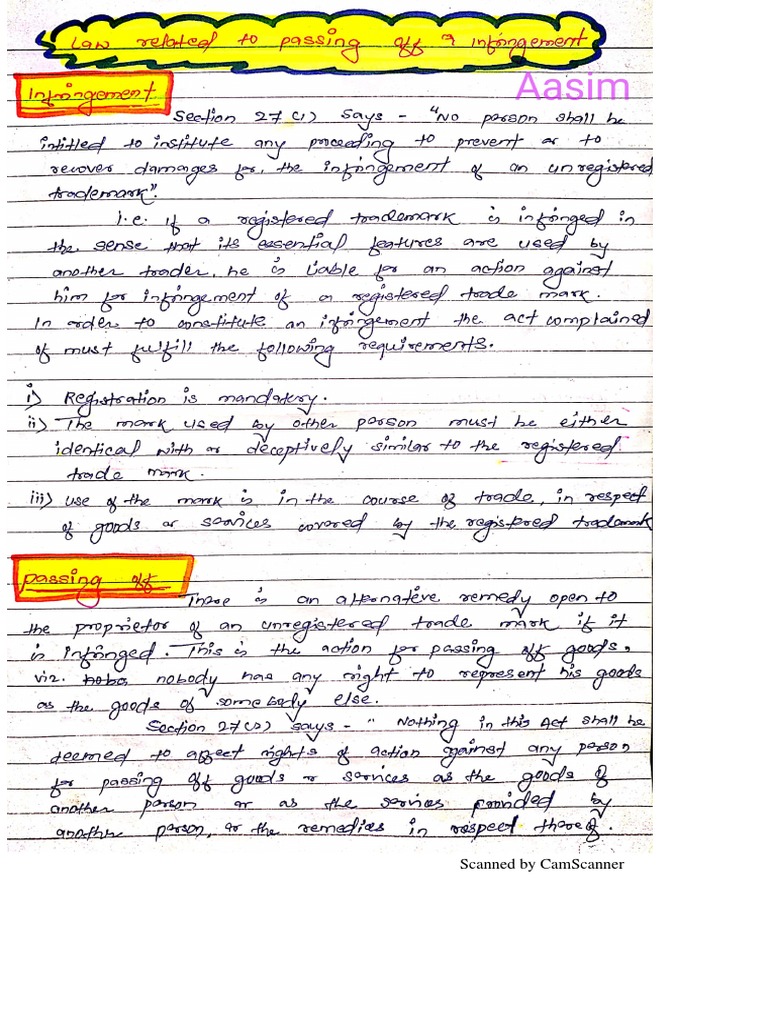 Law related to passing off & infringement
Aasim
Infringement
Section 27(1) says - "No person shall be
intitled to institute any proceeding to prevent or to
recover damages for, the infringement of an unregistered
trademark".
i.e. if a registered trademark is infringed in
the sense that its essential features are used by
another trader, he is liable for an action against
him for infringement of a registered trade mark.
In order to constitute an infringement the act complained
of must fulfill the following requirements.
i) Registration is mandatory.
ii) The mark used by other person must be either
identical with or deceptively similar to the registered
trade mark.
iii) use of the mark is in the course of trade, in respect
of goods or services covered by the registered trademark
passing off
There is an alternative remedy open to
the proprietor of an unregistered trade mark if it
is infringed. This is the action for passing off goods,
viz. nobody has any right to represent his goods
as the goods of somebody else.
Section 27(2) says - "Nothing in this Act shall be
deemed to affect rights of action against any person
for passing off goods or services as the goods of
another person or as the services provided by
another person, or the remedies in respect thereof.
Scanned by CamScanner